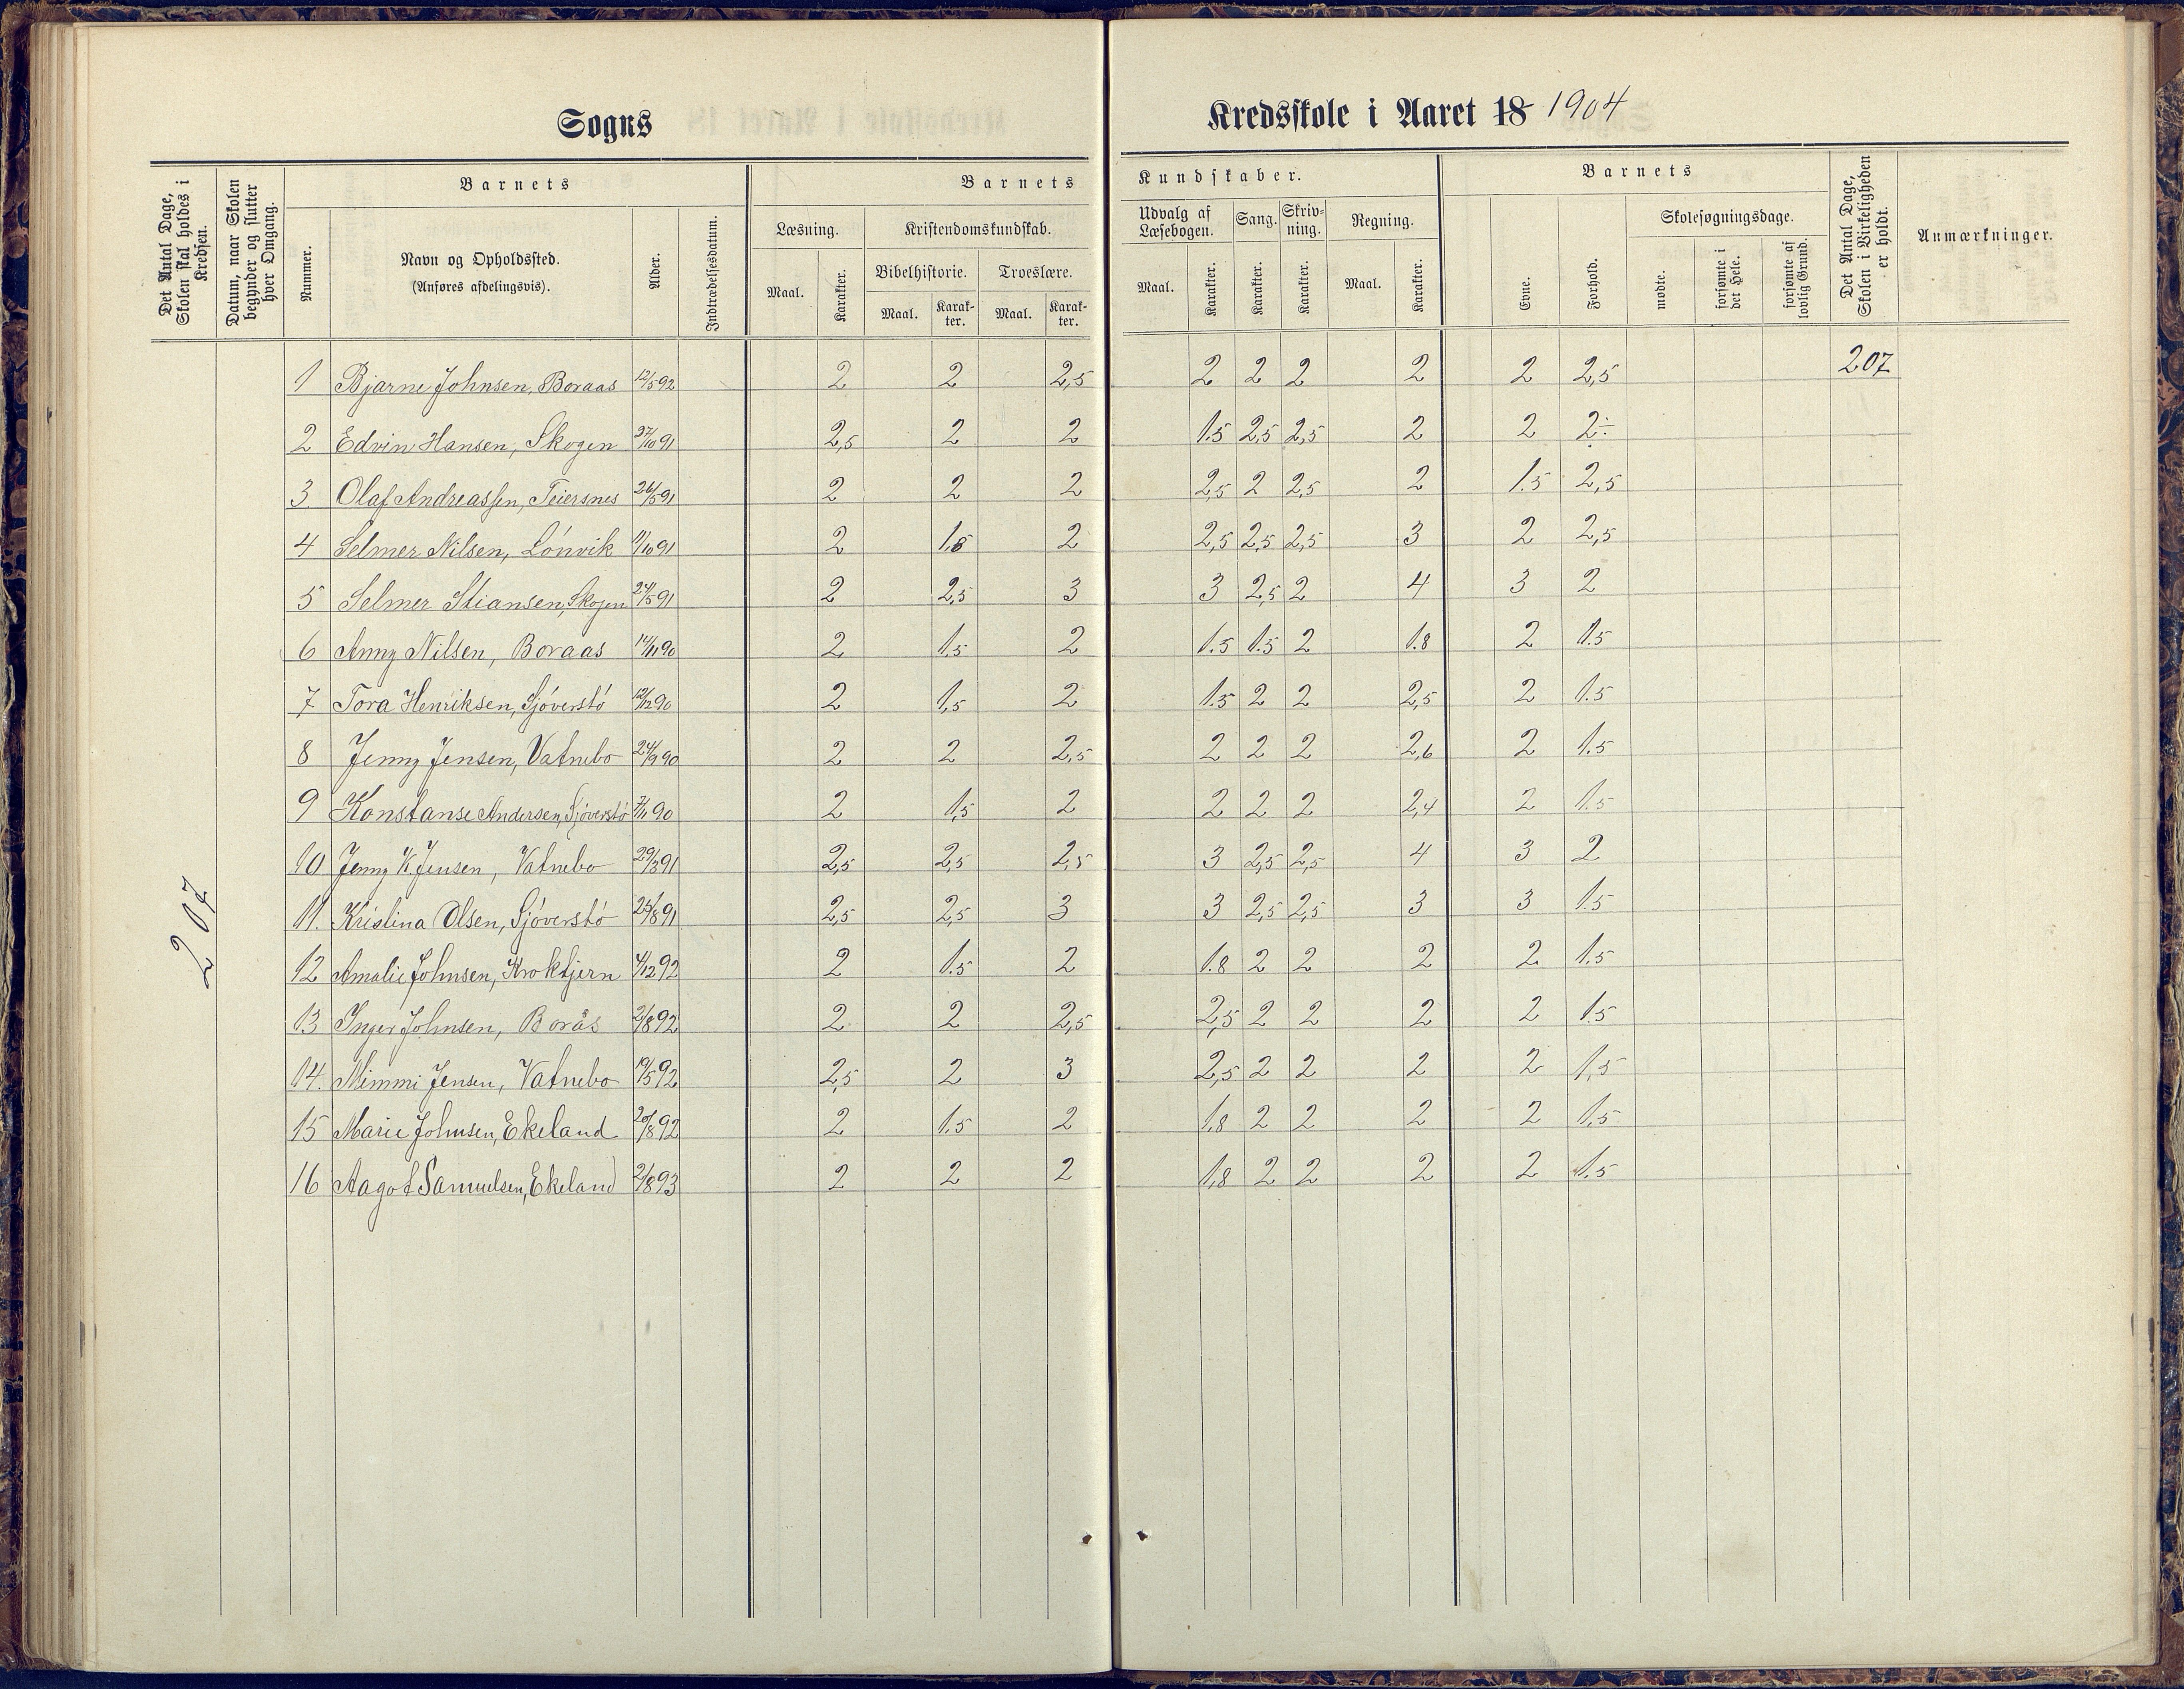 Sogns
Kredsskole i Aaret 18 1904
Det Antal Dage, Skolen skal holdes i Kredsen.
Datum, naar Skolen begynder og slutter hver Omgang.
Barnets
Barnets
Kundskaber.
Barnets
Det Antal Dage, Skolen i Virkeligheden er holdt.
Anmærkninger.
Nummer.
Navn og Opholdssted.
(Anføres afdelingsvis).
Alder.
Indtrædelsesdatum.
Læsning.
Kristendomskundskab.
Udvalg af Læsebogen.
Sang.
Skriv-ning.
Regning.
Evne.
Forhold.
Skolesøgningsdage.
Maal.
Karakter.
Bibelhistorie.
Troeslære.
Maal.
Karak-ter.
Maal.
Karak-ter.
Maal.
Karakter.
Karakter.
Karakter.
Maal.
Karakter.
mødte.
forsømte i det Hele.
forsømte af lovlig Grund.
207
1 Bjarne Johnsen, Boraas 12/5 92 2 2 2,5 2 2 2 2 2 2,5 207
2 Edvin Hansen, Skogen /10 91 2,5 2 2 1.5 2,5 2,5 2 2 2÷
3. Olaf Andreassen, Teiersnes 26/5 91 2 2 2 2,5 2 2,5 2 1.5 2,5
4 Selmer Nilsen, Lónvik 11/10 91 2 1,8 2 2,5 2,5 2,5 3 2 2,5
5 Selmer Stiansen, Skogen 24/5 91 2 2,5 3 3 2,5 2 4 3 2
6 Anny Nilsen, Boraas 14/11 90 2 1.5 2 1.5 1.5 2 1.8 2 1.5
7 Tora Henriksen, Sjóverstó 12/12 90 2 1,5 2 1.5 2 2 2,5 2 1.5
8 Jenny Jensen, Vatnebo 24/9 90 2 2 2,5 2 2 2 2,6 2 1.5
9 Konstanse Andersen, Sjóverstó 7/11 90 2 1,5 2 2 2 2 2,4 2 1.5
10 Jenny K Jensen, Vatnebo 29/3 91 2,5 2,5 2,5 3 2,5 2,5 4 3 2
11. Kristina Olsen, Sjóverstó 25/8 91 2,5 2,5 3 3 2,5 2,5 3 3 1.5
12 Amalie Johnsen, Kroktjern 4/12 92 2 1.5 2 1.8 2 2 2 2 1.5
13 Inger Johnsen, Borås 2/8 92 2 2 2,5 2,5 2 2 2 2 1.5
14. Mimmi Jensen, Vatnebo 19/5 92 2,5 2 3 2,5 2 2 2 2 1,5
15 Marie Johnsen, Ekeland 20/8 92 2 1.5 2 1,8 2 2 2 2 1.5
16 Aagot Samuelsen, Ekeland 2/8 93 2 2 2 1,8 2 2 2 2 1.5